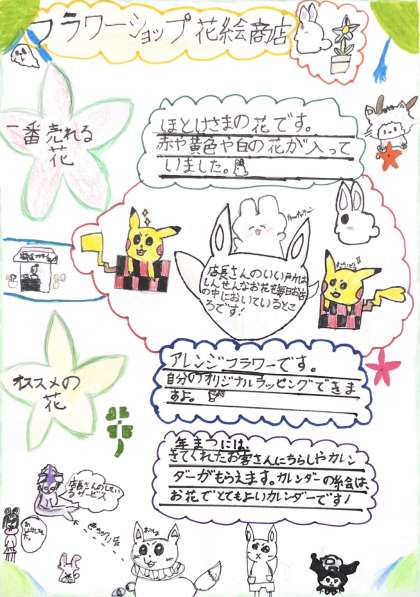 フラワーショップ花絵商店
一番売れる
花
ほとけさまの花です。
赤や黄色や白の花が入って
いました。
店長さんのいい所は
しんせんなお花を毎日お店
の中においているとこ
ろです!
オススメの
花
アレンジフラワーです。
自分のオリジナルラッピングできま
すよ。
年まつには、
きてくれたお客さんにちらしやカレン
ダーがもらえます。カレンダーの絵は、
お花でとてもよいカレンダーです!
店長さんのしてい
るサービス